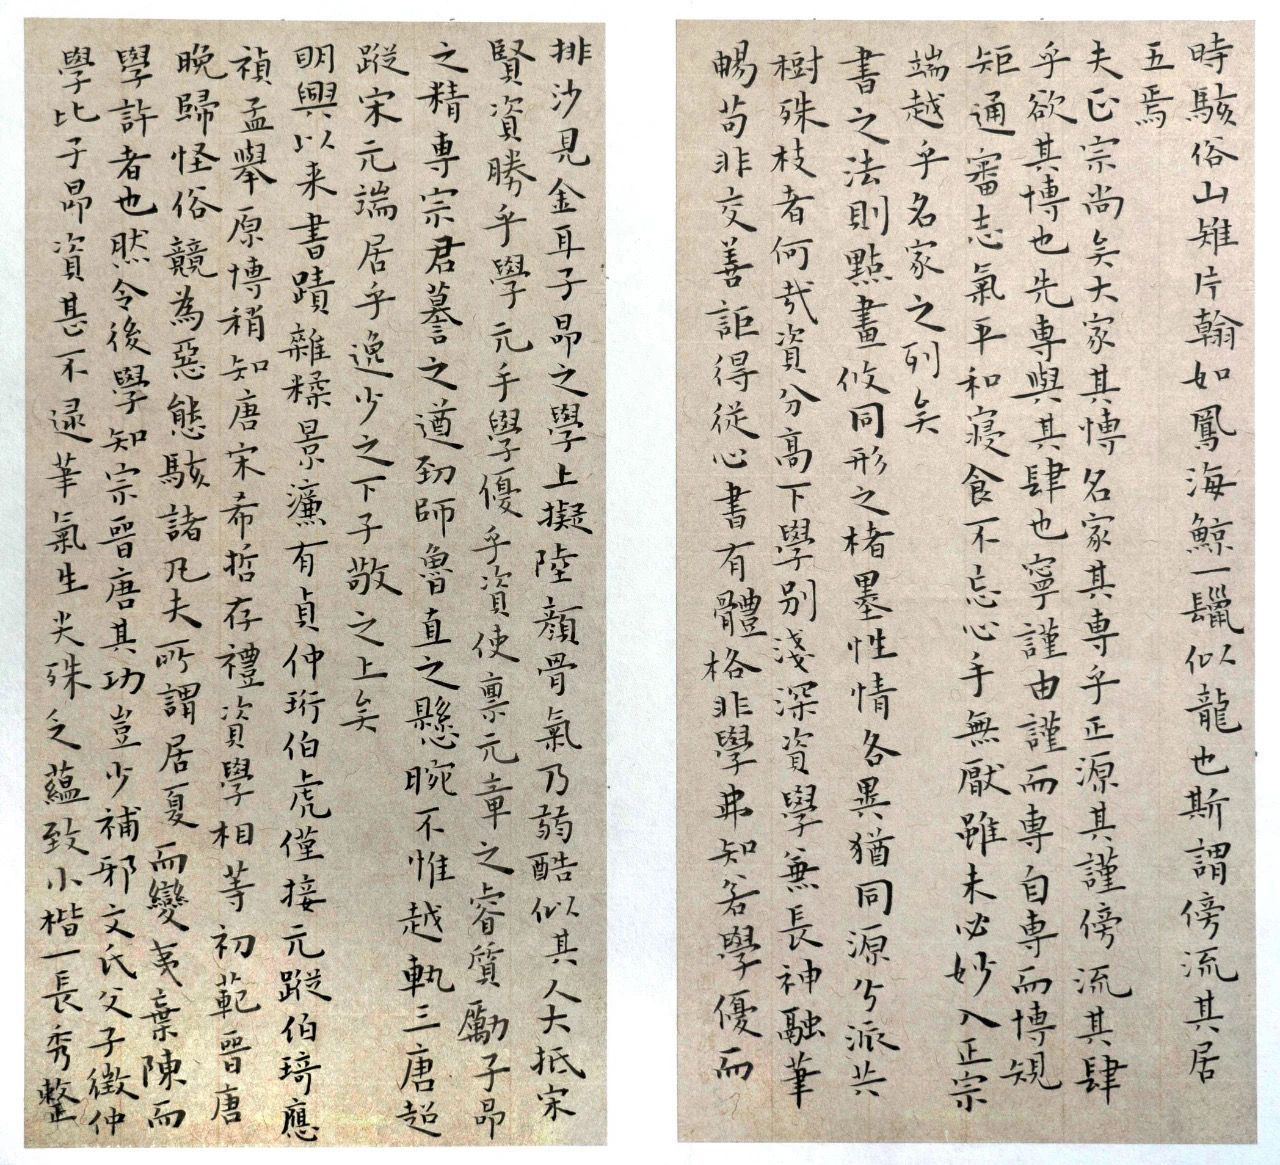 時駭俗山雉片翰如鳳海鯨一鬣似龍也斯謂傍流其居
五焉
夫正宗尚矣大家其博名家其專乎正源其謹傍流其肆
乎欲其博也先專與其肆也寧謹由謹而專自專而博規
矩通審志氣平和寢食不忘心手無厭雖未必妙入正宗
端越乎名家之列矣
書之法則點畫攸同形之楮墨性情各異猶同源分派共
樹殊枝者何哉資分高下學別淺深資學兼長神融筆
暢苟非交善詎得從心書有體格非學弗知若學優而
排沙見金耳子昂之學上擬陸顏骨氣乃弱酷似其人大抵宋
賢資勝乎學元手學優乎資使稟元章之睿質勵子昂
之精專宗君謩之遒勁師魯直之懸腕不惟越軌三唐超
蹤宋元端居乎逸少之下子敬之上矣
明興以来書蹟雜糅景濂有貞仲珩伯虎僅接元蹤伯琦應
禎孟舉原博稍知唐宋希哲存禮資學相等初範晉唐
晚歸怪俗競為惡態駭諸凡夫所謂居夏而變夷棄陳而
學許者也然令後學知宗晉唐其功豈少補邪文氏父子徵仲
學比子昂資甚不逮筆氣生尖殊乏蘊致小楷一長秀整